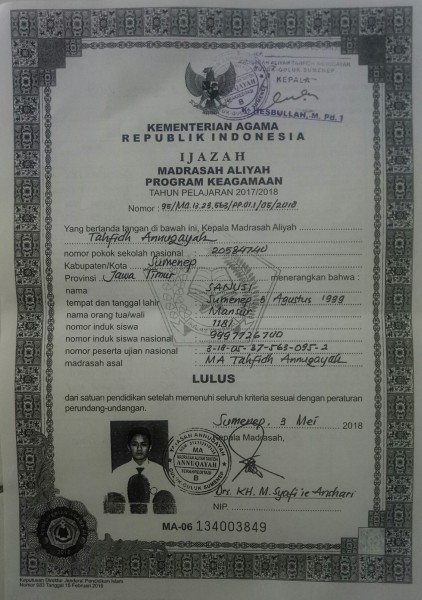 KEPALA
HESBULLAH, M. Pd. I
KEMENTERIAN AGAMA
REPUBLIK INDONESIA
IJAZAH
MADRASAH ALIYAH
PROGRAM KEAGAMAAN
TAHUN PELAJARAN 2017/2018
Nomor : 95/MA.13.28.563/PP.01.1/05/2018
Yang bertanda tangan di bawah ini, Kepala Madrasah Aliyah
Tahfidh Annuqayah
nomor pokok sekolah nasional : 20584740
Kabupaten/Kota Sumenep
Provinsi Jawa Timur menerangkan bahwa :
nama SANUSI
tempat dan tanggal lahir Sumenep 5 Agustus 1999
nama orang tua/wali Mansur
nomor induk siswa 1181
nomor induk siswa nasional 9997726740
nomor peserta ujian nasional 3-18-05-37-563-095-2
madrasah asal MA Tahfidh Annuqayah
LULUS
dari satuan pendidikan setelah memenuhi seluruh kriteria sesuai dengan peraturan
perundang-undangan.
Sumenep, 3 Mei 2018
Kepala Madrasah,
YAYASAN ANNUQAYAH
MA
ANNUQAYAH
TERAKREDITASI
B
GULUK GULUK SUMENEP
Drs. KH. M. Syafi'ie Anshari
NIP.
MA-06 134003849
Keputusan Direktur Jenderal Pendidikan Islam
Nomor 543 Tanggal 15 Februari 2018